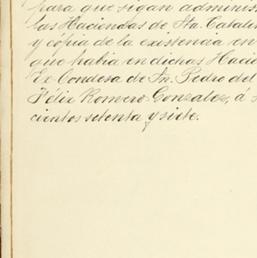 para que sigan adminis
las Haciendas de Sta. Catali
y cópia de la existencia en
que habia en dichas Haci
Ex-Condesa de Sn. Pedro del
Félix Romero Gonzalez, á
cientos setenta y siete.